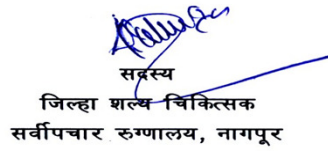 सदस्य
जिल्हा शल्य चिकित्सक
सर्वोपचार रुग्णालय, नागपूर